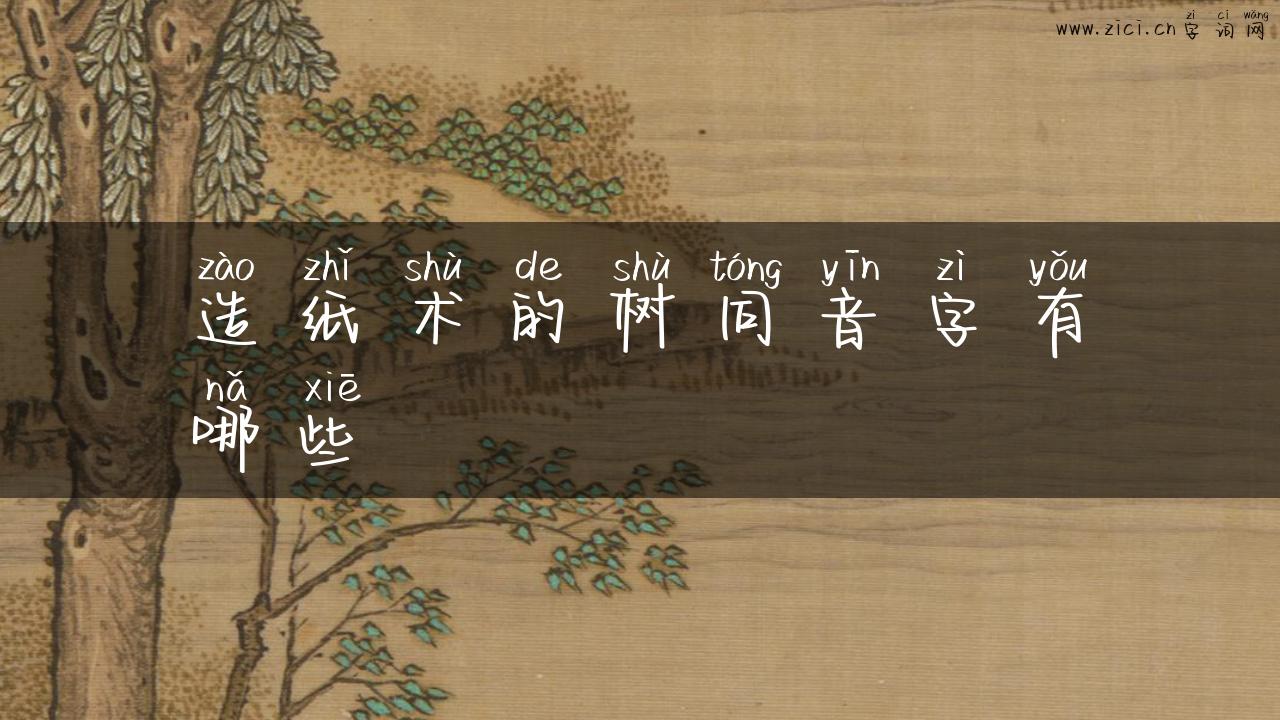 zì cí wǎng
www.zici.cn 字词网
zào zhǐ shù de shù tóng yīn zì yǒu
造纸术的树同音字有
nǎ xiē
哪些